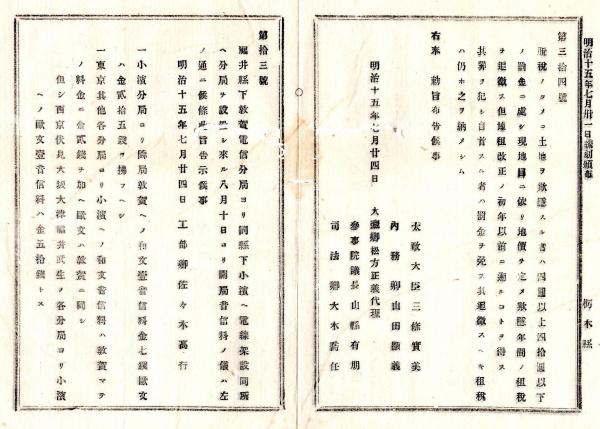 明治十五年七月卅一日翻刻頒布
栃木縣
第三拾四號
脱税ノタメニ土地ヲ欺隱スル者ハ四圓以上四拾圓以下
ノ罰金ニ處シ現地目ニ依リ地價ヲ定メ欺隱年間ノ租税
ヲ追徴ス但地租改正ノ初年以前ニ遡ルコトヲ得ス
其罪ヲ犯シ自首スル者ハ罰金ヲ免ス其追徴スヘキ租税
ハ仍ホ之ヲ納メシム
右奉 勅旨布告候事
明治十五年七月廿四日
太政大臣三條實美
内務卿山田顯義
大藏卿松方正義代理
參事院議長山縣有朋
司法卿大木喬任
第拾三號
福井縣下敦賀電信分局ヨリ同縣下小濱ヘ電線架設同所
ヘ分局ヲ設置シ來ル八月十日ヨリ開局音信料ノ儀ハ左
ノ通ニ候條此旨告示候事
明治十五年七月廿四日 工部卿佐々木高行
一小濱分局ヨリ隣局敦賀ヘノ和文壹音信料金七錢歐文
ハ金貳拾五錢ヲ拂フヘシ
一東京其他各分局ヨリ小濱ヘノ和文音信料ハ敦賀マテ
ノ料金ニ金貳錢ヲ加ヘ歐文ハ敦賀ニ同シ
但シ西京伏見大坂大津福井武生ノ各分局ヨリ小濱
ヘノ歐文壹音信料ハ金五拾錢トス